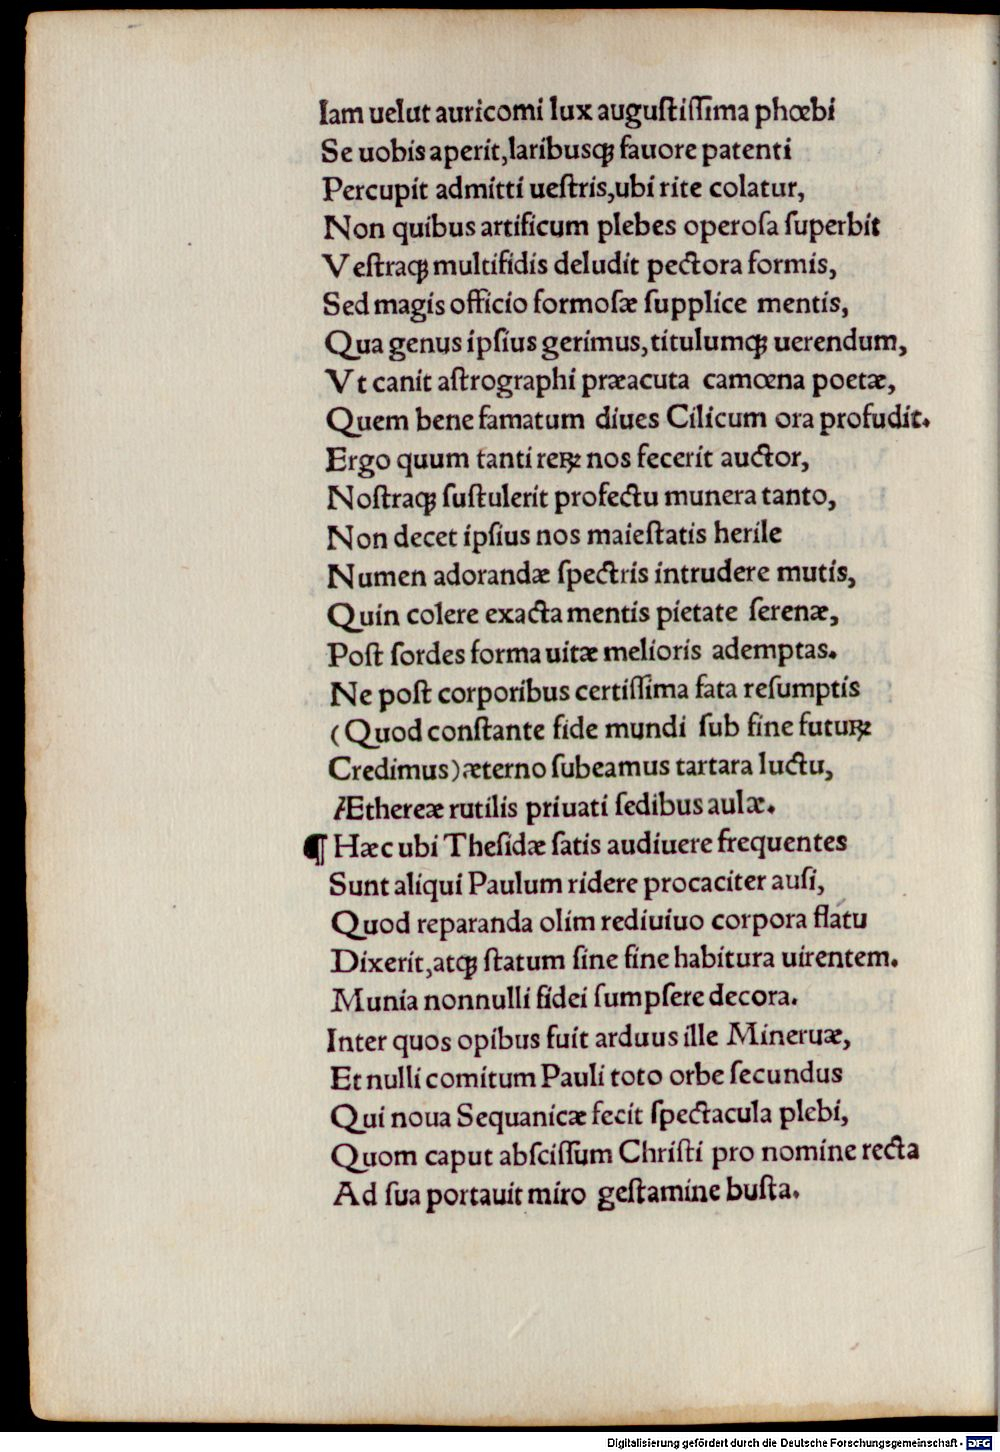 Iam uelut auricomi lux auguſtiſſima phœbi
Se uobis aperit,laribusqꝫ fauore patenti
Percupit admitti ueſtris,ubi rite colatur,
Non quibus artificum plebes operoſa ſuperbit
Veſtraqꝫ multifidis deludit pectora formis,
Sed magis officio formoſæ ſupplice mentis,
Qua genus ipſius gerimus,titulumqꝫ uerendum,
Vt canit aſtrographi præacuta camœna poetæ,
Quem bene famatum diues Cilicum ora profudit.
Ergo quum tanti reꝝ nos fecerit auctor,
Noſtraqꝫ ſuſtulerit profectu munera tanto,
Non decet ipſius nos maieſtatis herile
Numen adorandæ ſpectris intrudere mutis,
Quin colere exacta mentis pietate ſerenæ,
Poſt ſordes forma uitæ melioris ademptas.
Ne poſt corporibus certiſſima fata reſumptis
(Quod conſtante fide mundi ſub fine futuꝝ
Credimus)æterno ſubeamus tartara luctu,
Æthereæ rutilis priuati ſedibus aulæ.
¶ Hæc ubi Theſidæ ſatis audiuere frequentes
Sunt aliqui Paulum ridere procaciter auſi,
Quod reparanda olim rediuiuo corpora flatu
Dixerit,atqꝫ ſtatum ſine fine habitura uirentem.
Munia nonnulli fidei ſumpſere decora.
Inter quos opibus fuit arduus ille Mineruæ,
Et nulli comitum Pauli toto orbe ſecundus
Qui noua Sequanicæ fecit ſpectacula plebi,
Quom caput abſciſſum Chriſti pro nomine recta
Ad ſua portauit miro geſtamine buſta.
Digitalisierung gefördert durch die Deutsche Forschungsgemeinschaft - DFG